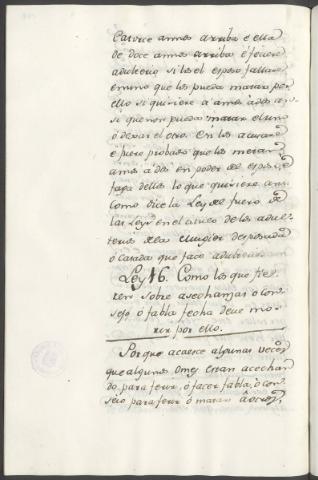 Catorce annos arriba e ella
de doce annos arriba, é ficiere
adulterio, si les el esposo fallare
en uno que los pueda matar por
ello si quisiere á amos ados asi
si que non pueda matar el uno
ó dexar el otro. E si los acusare
é fuere probado que los metan
amos á dos en poder del esposo, é
faga dellos lo que quisiere ansi
como dice la Ley del fuero de
las Leyes en el titulo de los adul-
terios de la muger desposada
ó casada que face adulterio.
Ley 16. Como los que fie-
ren sobre asechanzas ó con-
sejo ó fabla fecha deve mo-
rir por ello.
Porque acaesce algunas veces
que algunos Omes estan acechan-
do para ferir, ó facer fabla, ó con-
sejo para ferir ó matar á otros